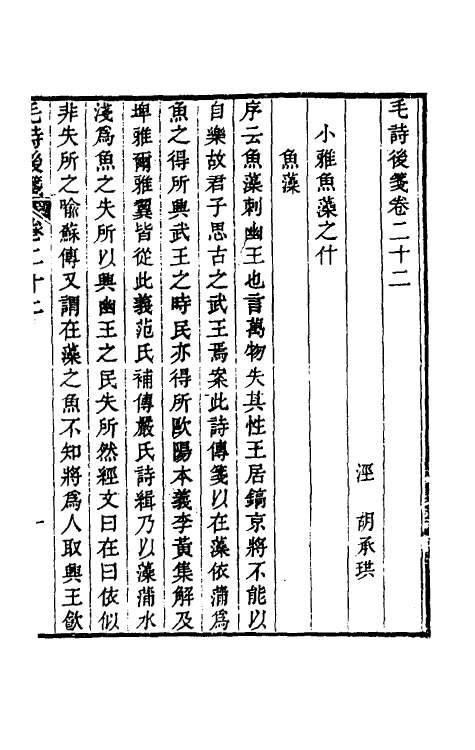 毛詩後箋卷二十二
涇　胡承珙
小雅魚藻之什
魚藻
序云魚藻刺幽王也言萬物失其性王居鎬京將不能以
自樂故君子思古之武王焉案此詩傳箋以在藻依蒲爲
魚之得所興武王之時民亦得所歐陽本義李黃集解及
埤雅爾雅翼皆從此義范氏補傳嚴氏詩緝乃以藻蒲水
淺爲魚之失所以興幽王之民失所然經文曰在曰依似
非失所之喻蘇傳又謂在藻之魚不知將爲人取興王飲
毛詩後箋　卷二十二
一